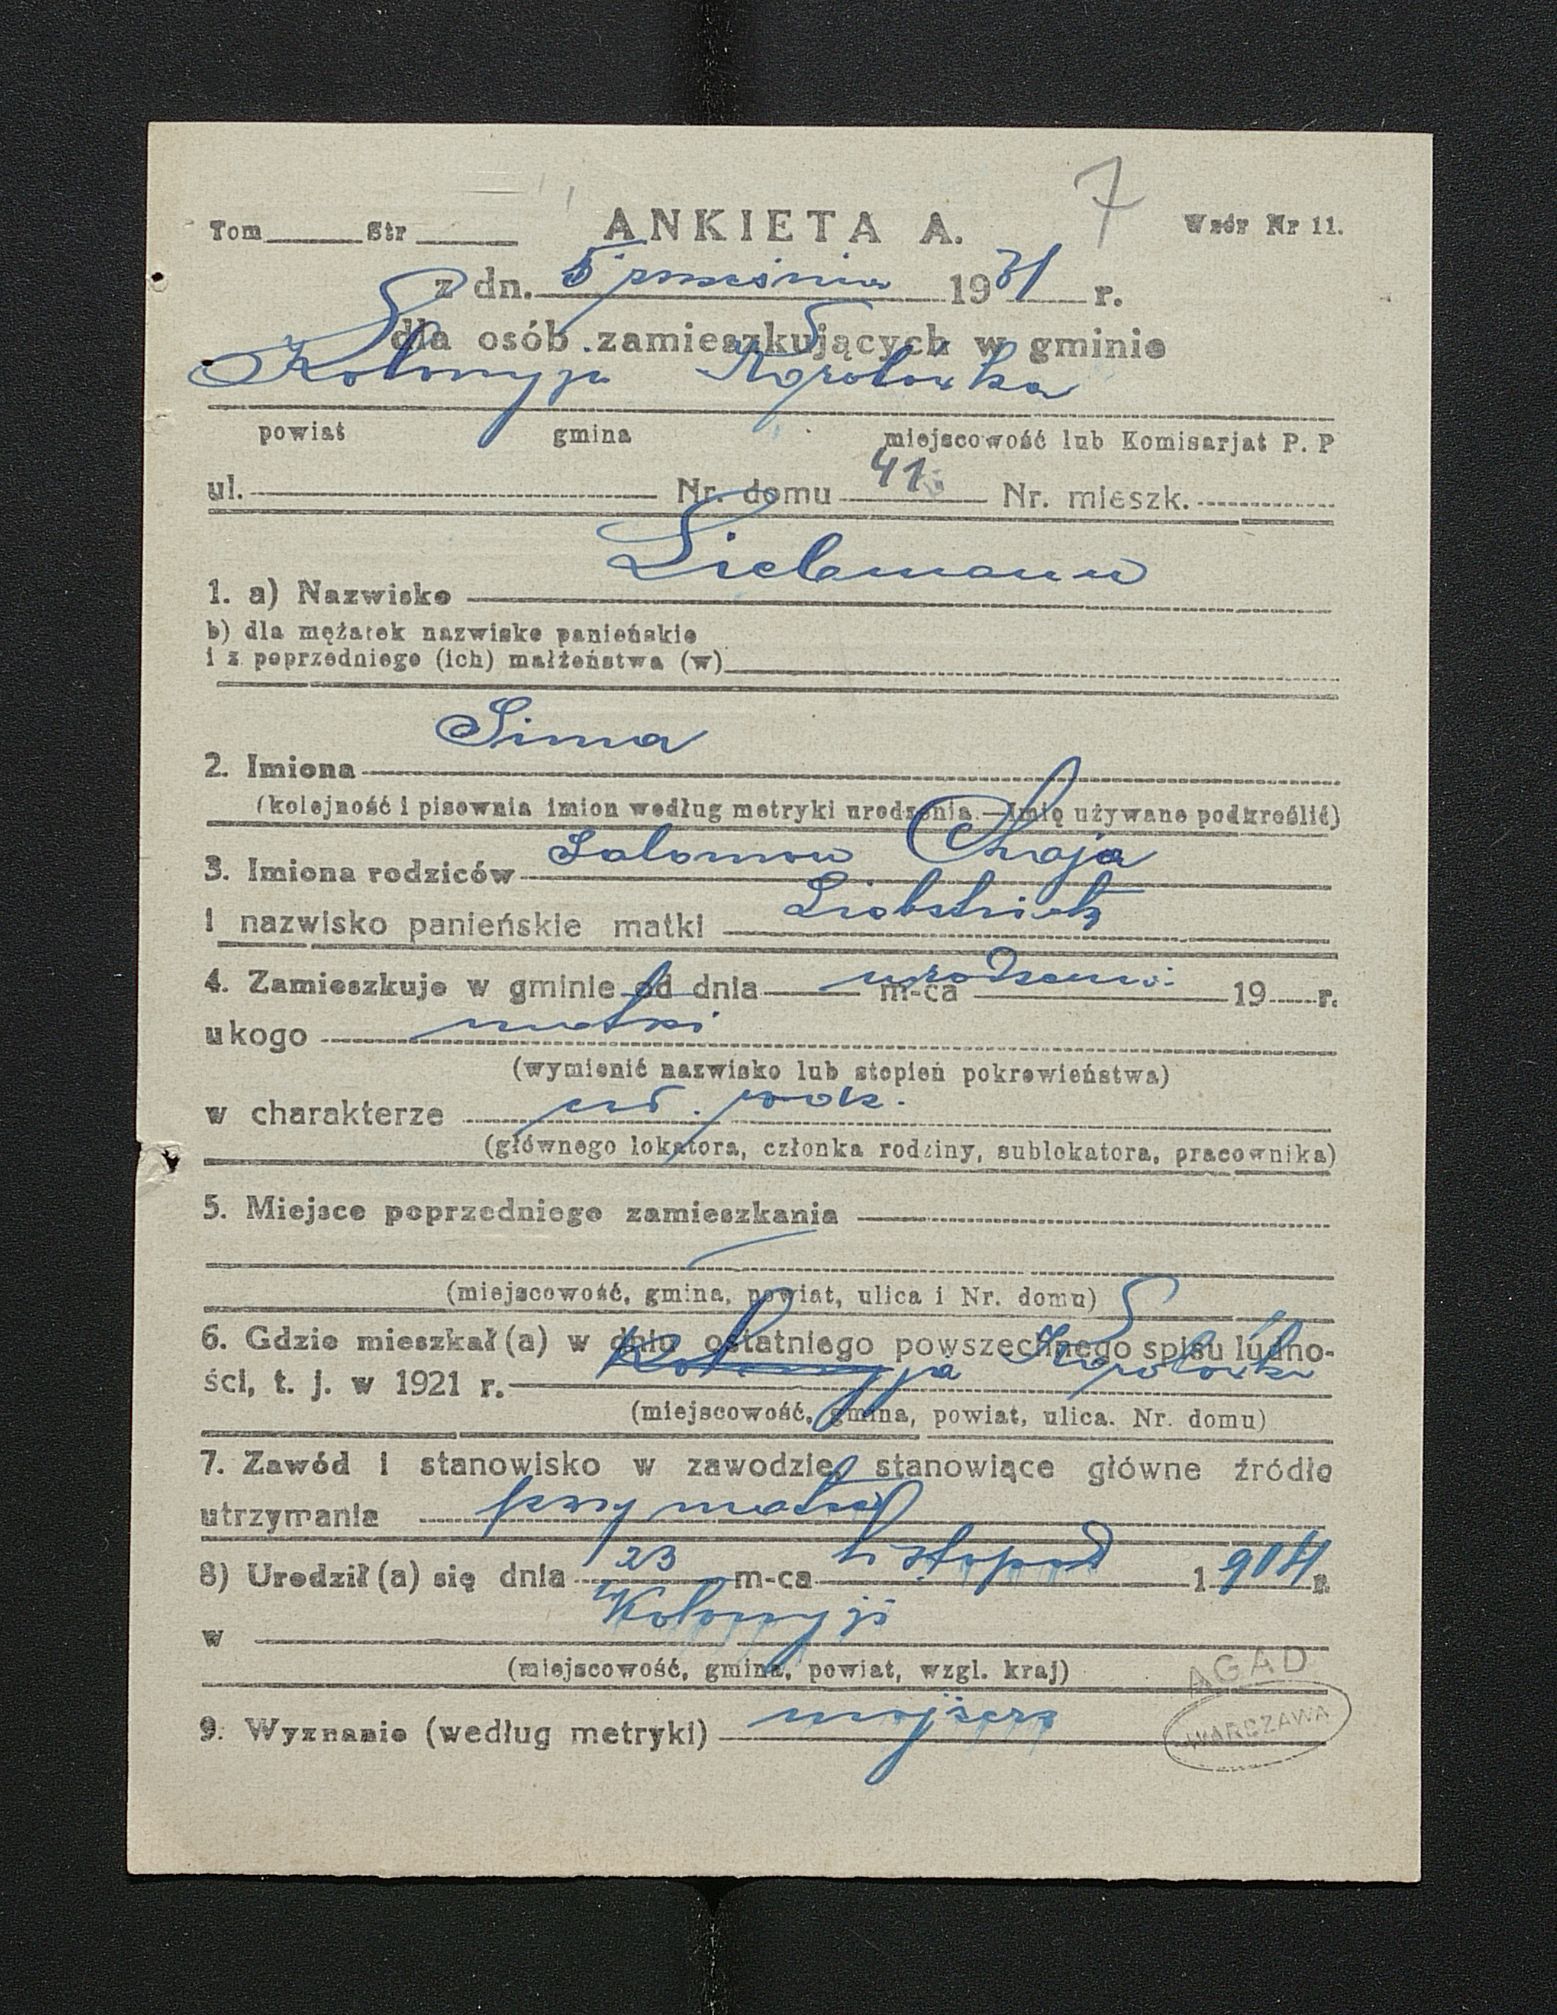 7
Tom Str ANKIETA A. Wzór Nr 11.
z dn. 5 września 1931 r.
dla osób zamieszkujących w gminie
Kołomyja Korolówka
powiat gmina miejscowość lub Komisarjat P. P
ul. Nr. domu 41 Nr. mieszk.
1. a) Nazwisko Liebmann
b) dla mężatek nazwisko panieńskie
i z poprzedniego (ich) małżeństwa (w)
2. Imiona Sima
(kolejność i pisownia imion według metryki urodzenia.—Imię używane podkreślić)
3. Imiona rodziców Salomon Chaja
i nazwisko panieńskie matki
4. Zamieszkuje w gminie od dnia m-ca urodzenia 19 r.
u kogo matki
(wymienić nazwisko lub stopień pokrewieństwa)
w charakterze czł. rodz.
(głównego lokatora, członka rodziny, sublokatora, pracownika)
5. Miejsce poprzedniego zamieszkania
(miejscowość, gmina, powiat, ulica i Nr. domu)
6. Gdzie mieszkał(a) w dniu ostatniego powszechnego spisu ludno-
ści, t. j. w 1921 r. Kołomyja Korolówka
(miejscowość, gmina, powiat, ulica. Nr. domu)
7. Zawód i stanowisko w zawodzie, stanowiące główne źródło
utrzymania przy matce
8) Urodził(a) się dnia 23 m-ca listopad 1904 r.
w Kołomyji
(miejscowość, gmina, powiat, wzgl. kraj)
9. Wyznanie (według metryki) mojżesz
AGAD
WARCZAWA